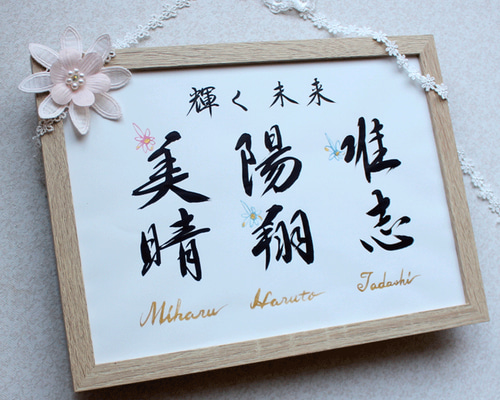 輝く未来
唯志
陽翔
美晴
Miharu Haruto Tadashi